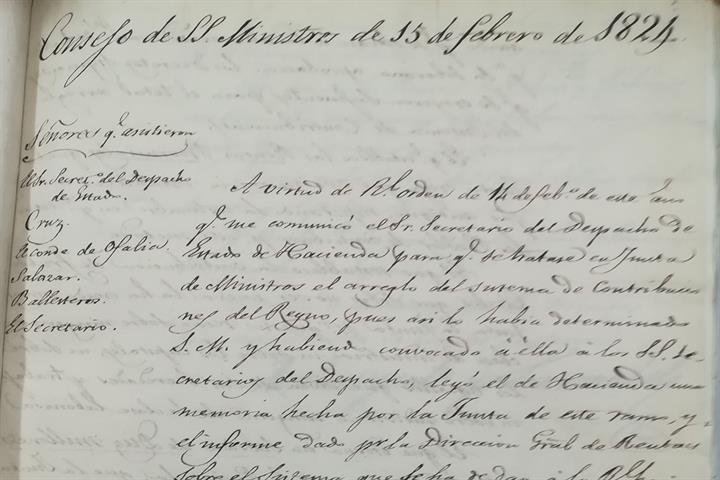 Consejo de SS. Ministros de 15 de febrero de 1824.
Señores q.e asistieron
Sr. Secret.o del Despacho
de Estado.
Cruz.
Conde de Ofalia.
Salazar.
Ballesteros.
El Secretario.
A virtud de Rl. orden de 14 de feb.o de este año
q.e me comunicó el Sr. Secretario del Despacho de
Estado de Hacienda para q.e se tratase en Junta
de Ministros el arreglo del sistema de Contribucio
nes del Reyno, pues asi lo habia determinado
S. M. y habiend convocado á élla á los SS. Se-
cretarios del Despacho, leyó el de Hacienda una
memoria hecha por la Junta de este ramo, y
el informe dado pr. la Direccion Gral. de Rentas
sobre el sistema que se ha de dar á la